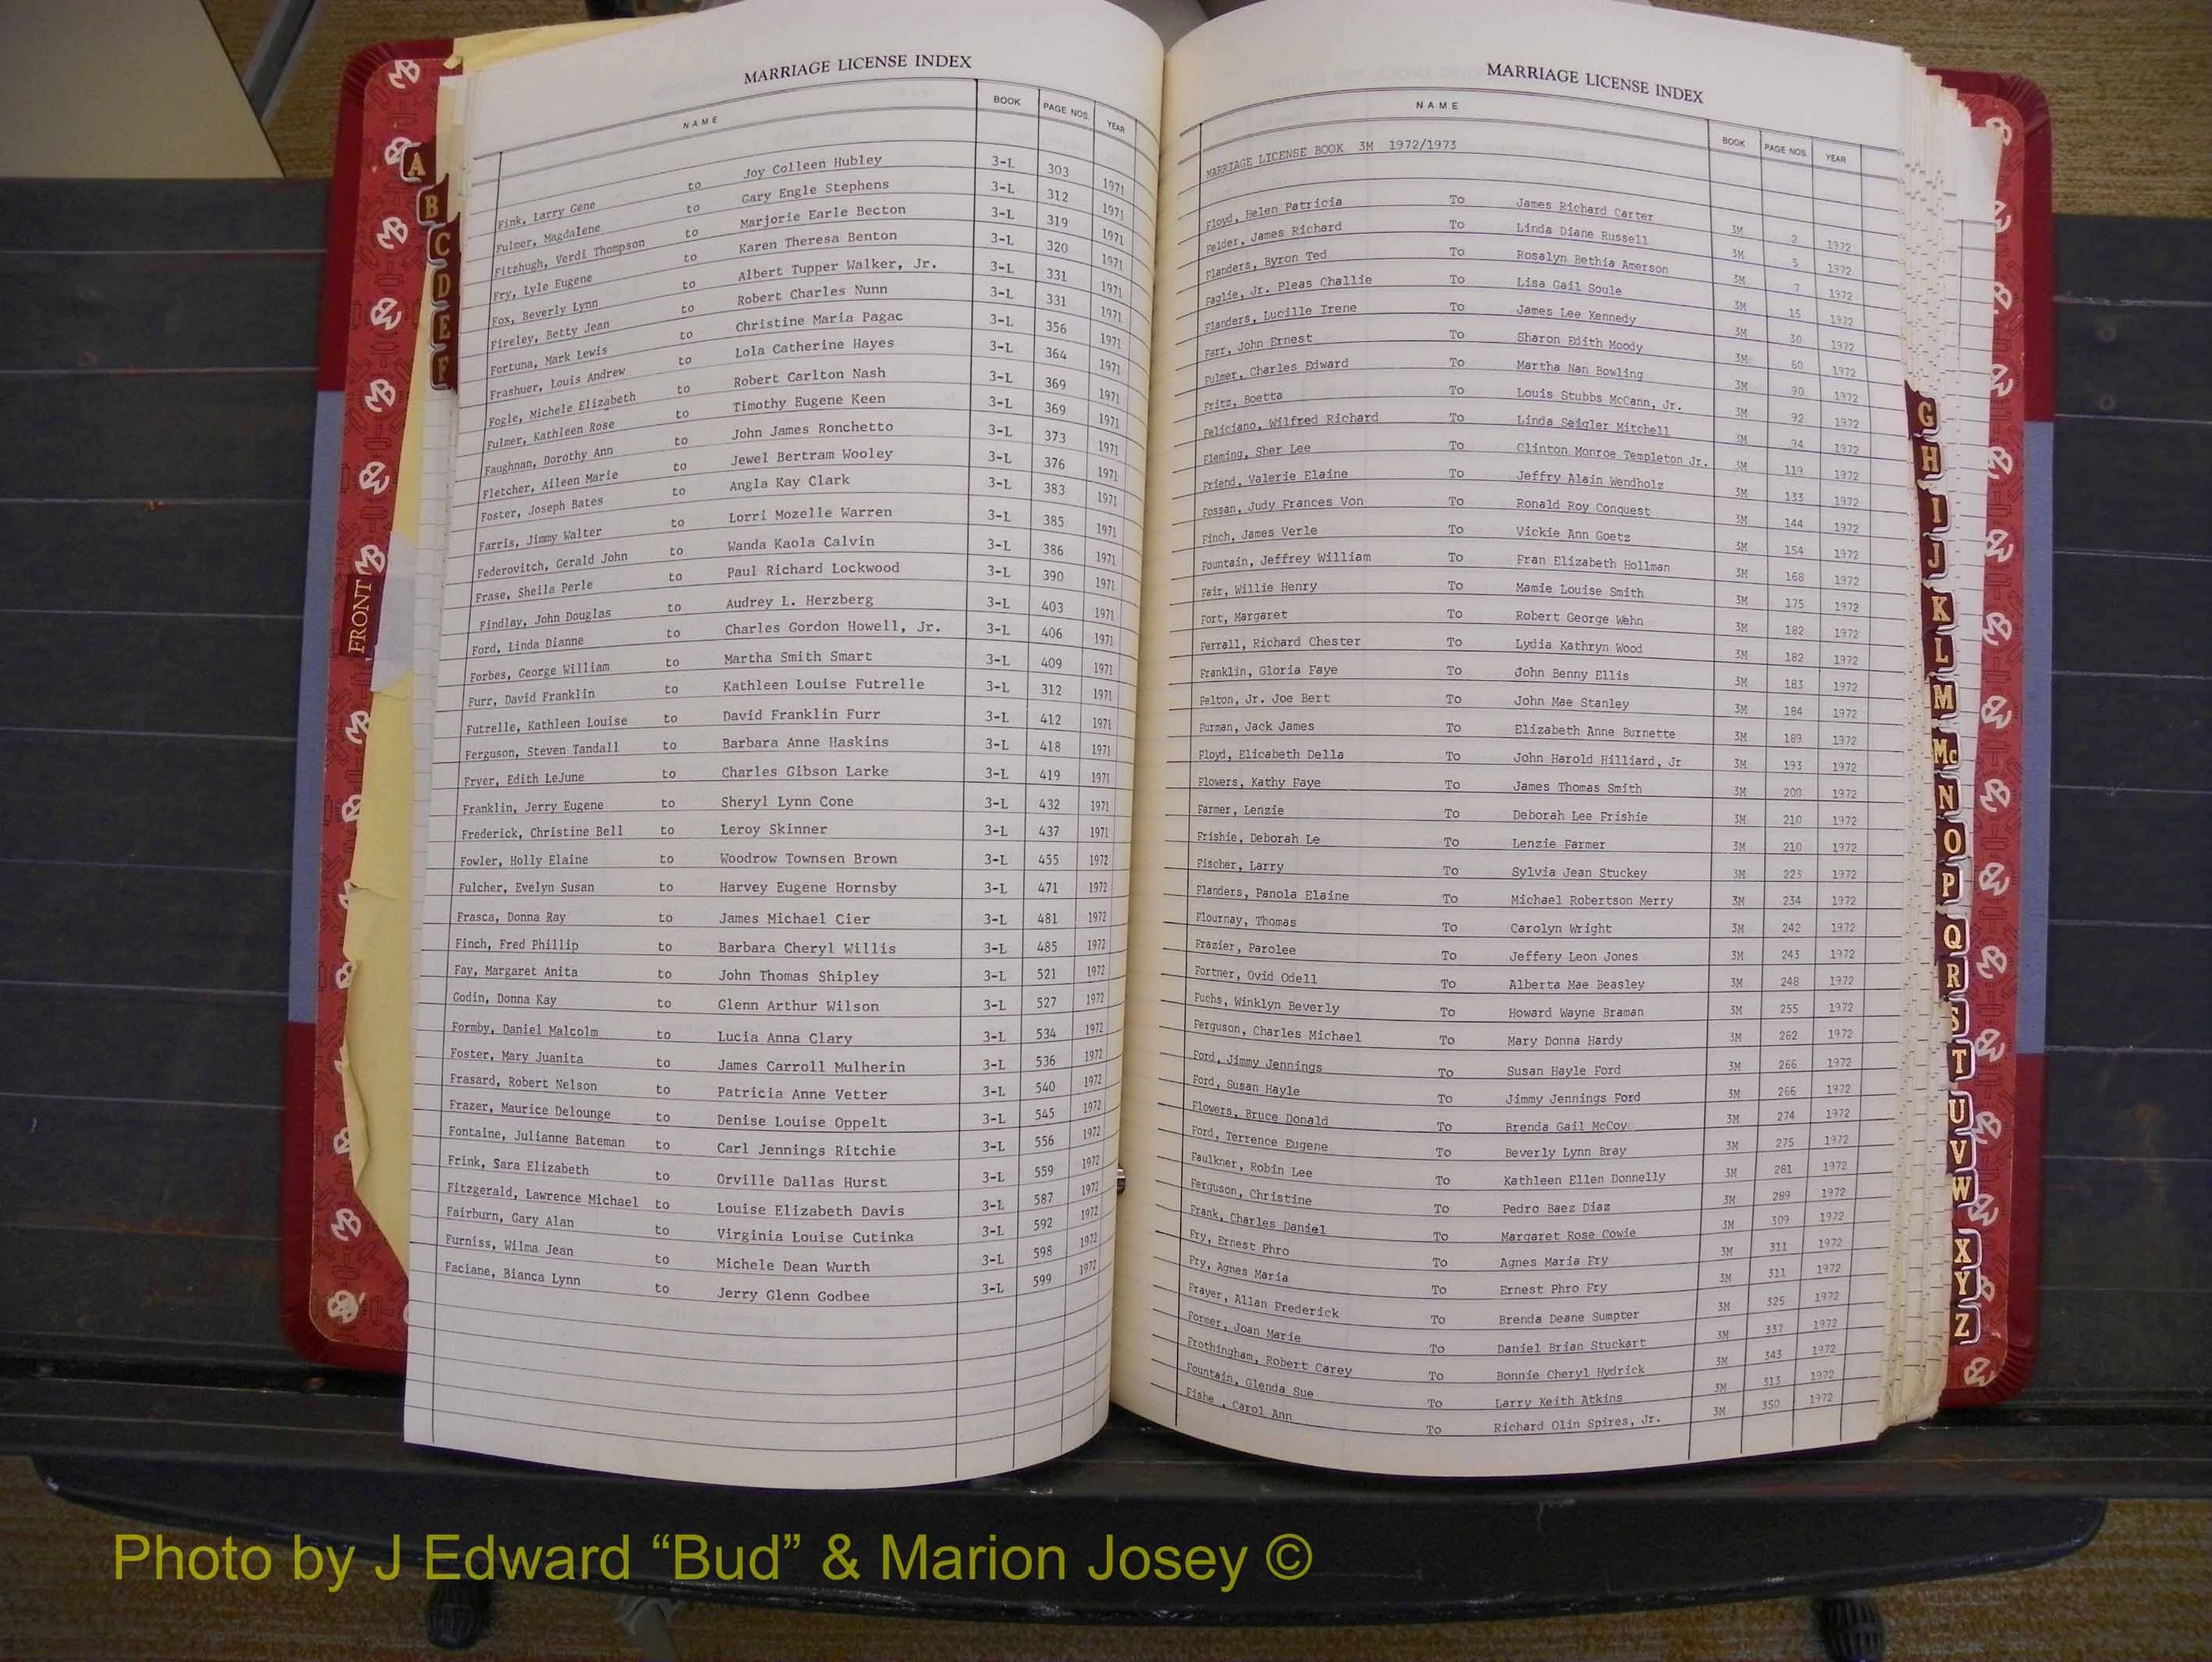 MARRIAGE LICENSE INDEX
NAME BOOK PAGE NOS. YEAR
Fink, Larry Gene to Joy Colleen Hubley 3-L 303 1971
Fulmer, Magdalene to Gary Engle Stephens 3-L 312 1971
Fitzhugh, Verdi Thompson to Marjorie Earle Becton 3-L 319 1971
Fry, Lyle Eugene to Karen Theresa Benton 3-L 320 1971
Fox, Beverly Lynn to Albert Tupper Walker, Jr. 3-L 331 1971
Fireley, Betty Jean to Robert Charles Nunn 3-L 331 1971
Fortuna, Mark Lewis to Christine Maria Pagac 3-L 356 1971
Frashuer, Louis Andrew to Lola Catherine Hayes 3-L 364 1971
Fogle, Michele Elizabeth to Robert Carlton Nash 3-L 369 1971
Fulmer, Kathleen Rose to Timothy Eugene Keen 3-L 369 1971
Faughnan, Dorothy Ann to John James Ronchetto 3-L 373 1971
Fletcher, Aileen Marie to Jewel Bertram Wooley 3-L 376 1971
Foster, Joseph Bates to Angla Kay Clark 3-L 383 1971
Farris, Jimmy Walter to Lorri Mozelle Warren 3-L 385 1971
Federovitch, Gerald John to Wanda Kaola Calvin 3-L 386 1971
Frase, Sheila Perle to Paul Richard Lockwood 3-L 390 1971
Findlay, John Douglas to Audrey L. Herzberg 3-L 403 1971
Ford, Linda Dianne to Charles Gordon Howell, Jr. 3-L 406 1971
Forbes, George William to Martha Smith Smart 3-L 409 1971
Furr, David Franklin to Kathleen Louise Futrelle 3-L 312 1971
Futrelle, Kathleen Louise to David Franklin Furr 3-L 412 1971
Ferguson, Steven Tandall to Barbara Anne Haskins 3-L 418 1971
Fryer, Edith LeJune to Charles Gibson Larke 3-L 419 1971
Franklin, Jerry Eugene to Sheryl Lynn Cone 3-L 432 1971
Frederick, Christine Bell to Leroy Skinner 3-L 437 1971
Fowler, Holly Elaine to Woodrow Townsen Brown 3-L 455 1972
Fulcher, Evelyn Susan to Harvey Eugene Hornsby 3-L 471 1972
Frasca, Donna Ray to James Michael Cier 3-L 481 1972
Finch, Fred Phillip to Barbara Cheryl Willis 3-L 485 1972
Fay, Margaret Anita to John Thomas Shipley 3-L 521 1972
Godin, Donna Kay to Glenn Arthur Wilson 3-L 527 1972
Formby, Daniel Malcolm to Lucia Anna Clary 3-L 534 1972
Foster, Mary Juanita to James Carroll Mulherin 3-L 536 1972
Frasard, Robert Nelson to Patricia Anne Vetter 3-L 540 1972
Frazer, Maurice Delounge to Denise Louise Oppelt 3-L 545 1972
Fontaine, Julianne Bateman to Carl Jennings Ritchie 3-L 556 1972
Frink, Sara Elizabeth to Orville Dallas Hurst 3-L 559 1972
Fitzgerald, Lawrence Michael to Louise Elizabeth Davis 3-L 587 1972
Fairburn, Gary Alan to Virginia Louise Cutinka 3-L 592 1972
Furniss, Wilma Jean to Michele Dean Wurth 3-L 598 1972
Faciane, Bianca Lynn to Jerry Glenn Godbee 3-L 599 1972
MARRIAGE LICENSE INDEX
NAME BOOK PAGE NOS. YEAR
MARRIAGE LICENSE BOOK 3M 1972/1973
Floyd, Helen Patricia To James Richard Carter 3M 2 1972
Felder, James Richard To Linda Diane Russell 3M 5 1972
Flanders, Byron Ted To Rosalyn Bethia Amerson 3M 7 1972
Faglie, Jr. Pleas Challie To Lisa Gail Soule 3M 15 1972
Flanders, Lucille Irene To James Lee Kennedy 3M 30 1972
Farr, John Ernest To Sharon Edith Moody 3M 60 1972
Fulmer, Charles Edward To Martha Nan Bowling 3M 90 1972
Fritz, Boetta To Louis Stubbs McCann, Jr. 3M 92 1972
Feliciano, Wilfred Richard To Linda Seigler Mitchell 3M 94 1972
Fleming, Sher Lee To Clinton Monroe Templeton Jr. 3M 119 1972
Friend, Valerie Elaine To Jeffry Alain Wendholz 3M 133 1972
Fossan, Judy Frances Von To Ronald Roy Conquest 3M 144 1972
Finch, James Verle To Vickie Ann Goetz 3M 154 1972
Fountain, Jeffrey William To Fran Elizabeth Hollman 3M 168 1972
Fair, Willie Henry To Mamie Louise Smith 3M 175 1972
Fort, Margaret To Robert George Wehn 3M 182 1972
Ferrall, Richard Chester To Lydia Kathryn Wood 3M 182 1972
Franklin, Gloria Faye To John Benny Ellis 3M 183 1972
Felton, Jr. Joe Bert To John Mae Stanley 3M 184 1972
Furman, Jack James To Elizabeth Anne Burnette 3M 189 1972
Floyd, Elicabeth Della To John Harold Hilliard, Jr 3M 193 1972
Flowers, Kathy Faye To James Thomas Smith 3M 200 1972
Farmer, Lenzie To Deborah Lee Frishie 3M 210 1972
Frishie, Deborah Le To Lenzie Farmer 3M 210 1972
Fischer, Larry To Sylvia Jean Stuckey 3M 223 1972
Flanders, Panola Elaine To Michael Robertson Merry 3M 234 1972
Flournay, Thomas To Carolyn Wright 3M 242 1972
Frazier, Parolee To Jeffery Leon Jones 3M 243 1972
Fortner, Ovid Odell To Alberta Mae Beasley 3M 248 1972
Fuchs, Winklyn Beverly To Howard Wayne Braman 3M 255 1972
Ferguson, Charles Michael To Mary Donna Hardy 3M 262 1972
Ford, Jimmy Jennings To Susan Hayle Ford 3M 266 1972
Ford, Susan Hayle To Jimmy Jennings Ford 3M 266 1972
Flowers, Bruce Donald To Brenda Gail McCoy 3M 274 1972
Ford, Terrence Eugene To Beverly Lynn Bray 3M 275 1972
Faulkner, Robin Lee To Kathleen Ellen Donnelly 3M 281 1972
Ferguson, Christine To Pedro Baez Diaz 3M 289 1972
Frank, Charles Daniel To Margaret Rose Cowie 3M 309 1972
Fry, Ernest Phro To Agnes Maria Fry 3M 311 1972
Fry, Agnes Maria To Ernest Phro Fry 3M 311 1972
Frayer, Allan Frederick To Brenda Deane Sumpter 3M 325 1972
Former, Joan Marie To Daniel Brian Stuckart 3M 337 1972
Frothingham, Robert Carey To Bonnie Cheryl Hydrick 3M 343 1972
Fountain, Glenda Sue To Larry Keith Atkins 3M 313 1972
Fishe , Carol Ann To Richard Olin Spires, Jr. 3M 350 1972
A
B
C
D
E
F
FRONT
G
H
I
J
K
L
M
Mc
N
O
P
Q
R
S
T
U
V
W
X
Y
Z
Photo by J Edward “Bud” & Marion Josey ©